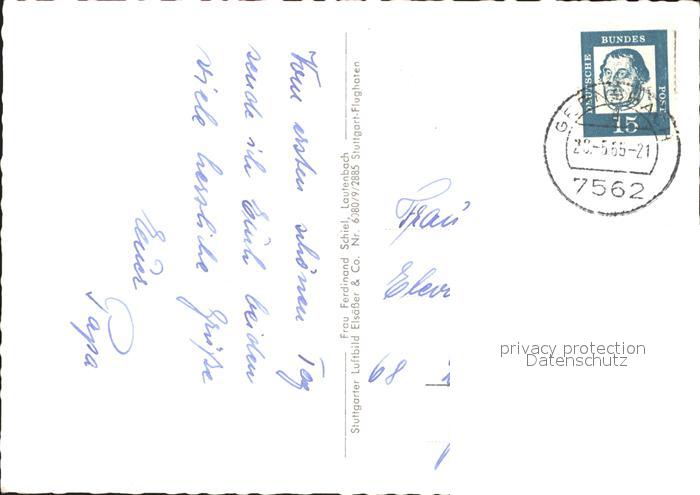 Vom ersten schönen Tag
sende ich Euch beiden
viele herzliche Grüße
Euer
Papa
Frau Ferdinand Schiel, Lautenbach
Stuttgarter Luftbild Elsäßer & Co. Nr. 6080/9/2885 Stuttgart-Flughafen
DEUTSCHE BUNDES POST
15
-5.65-21
7562
Frau
68
privacy protection
Datenschutz